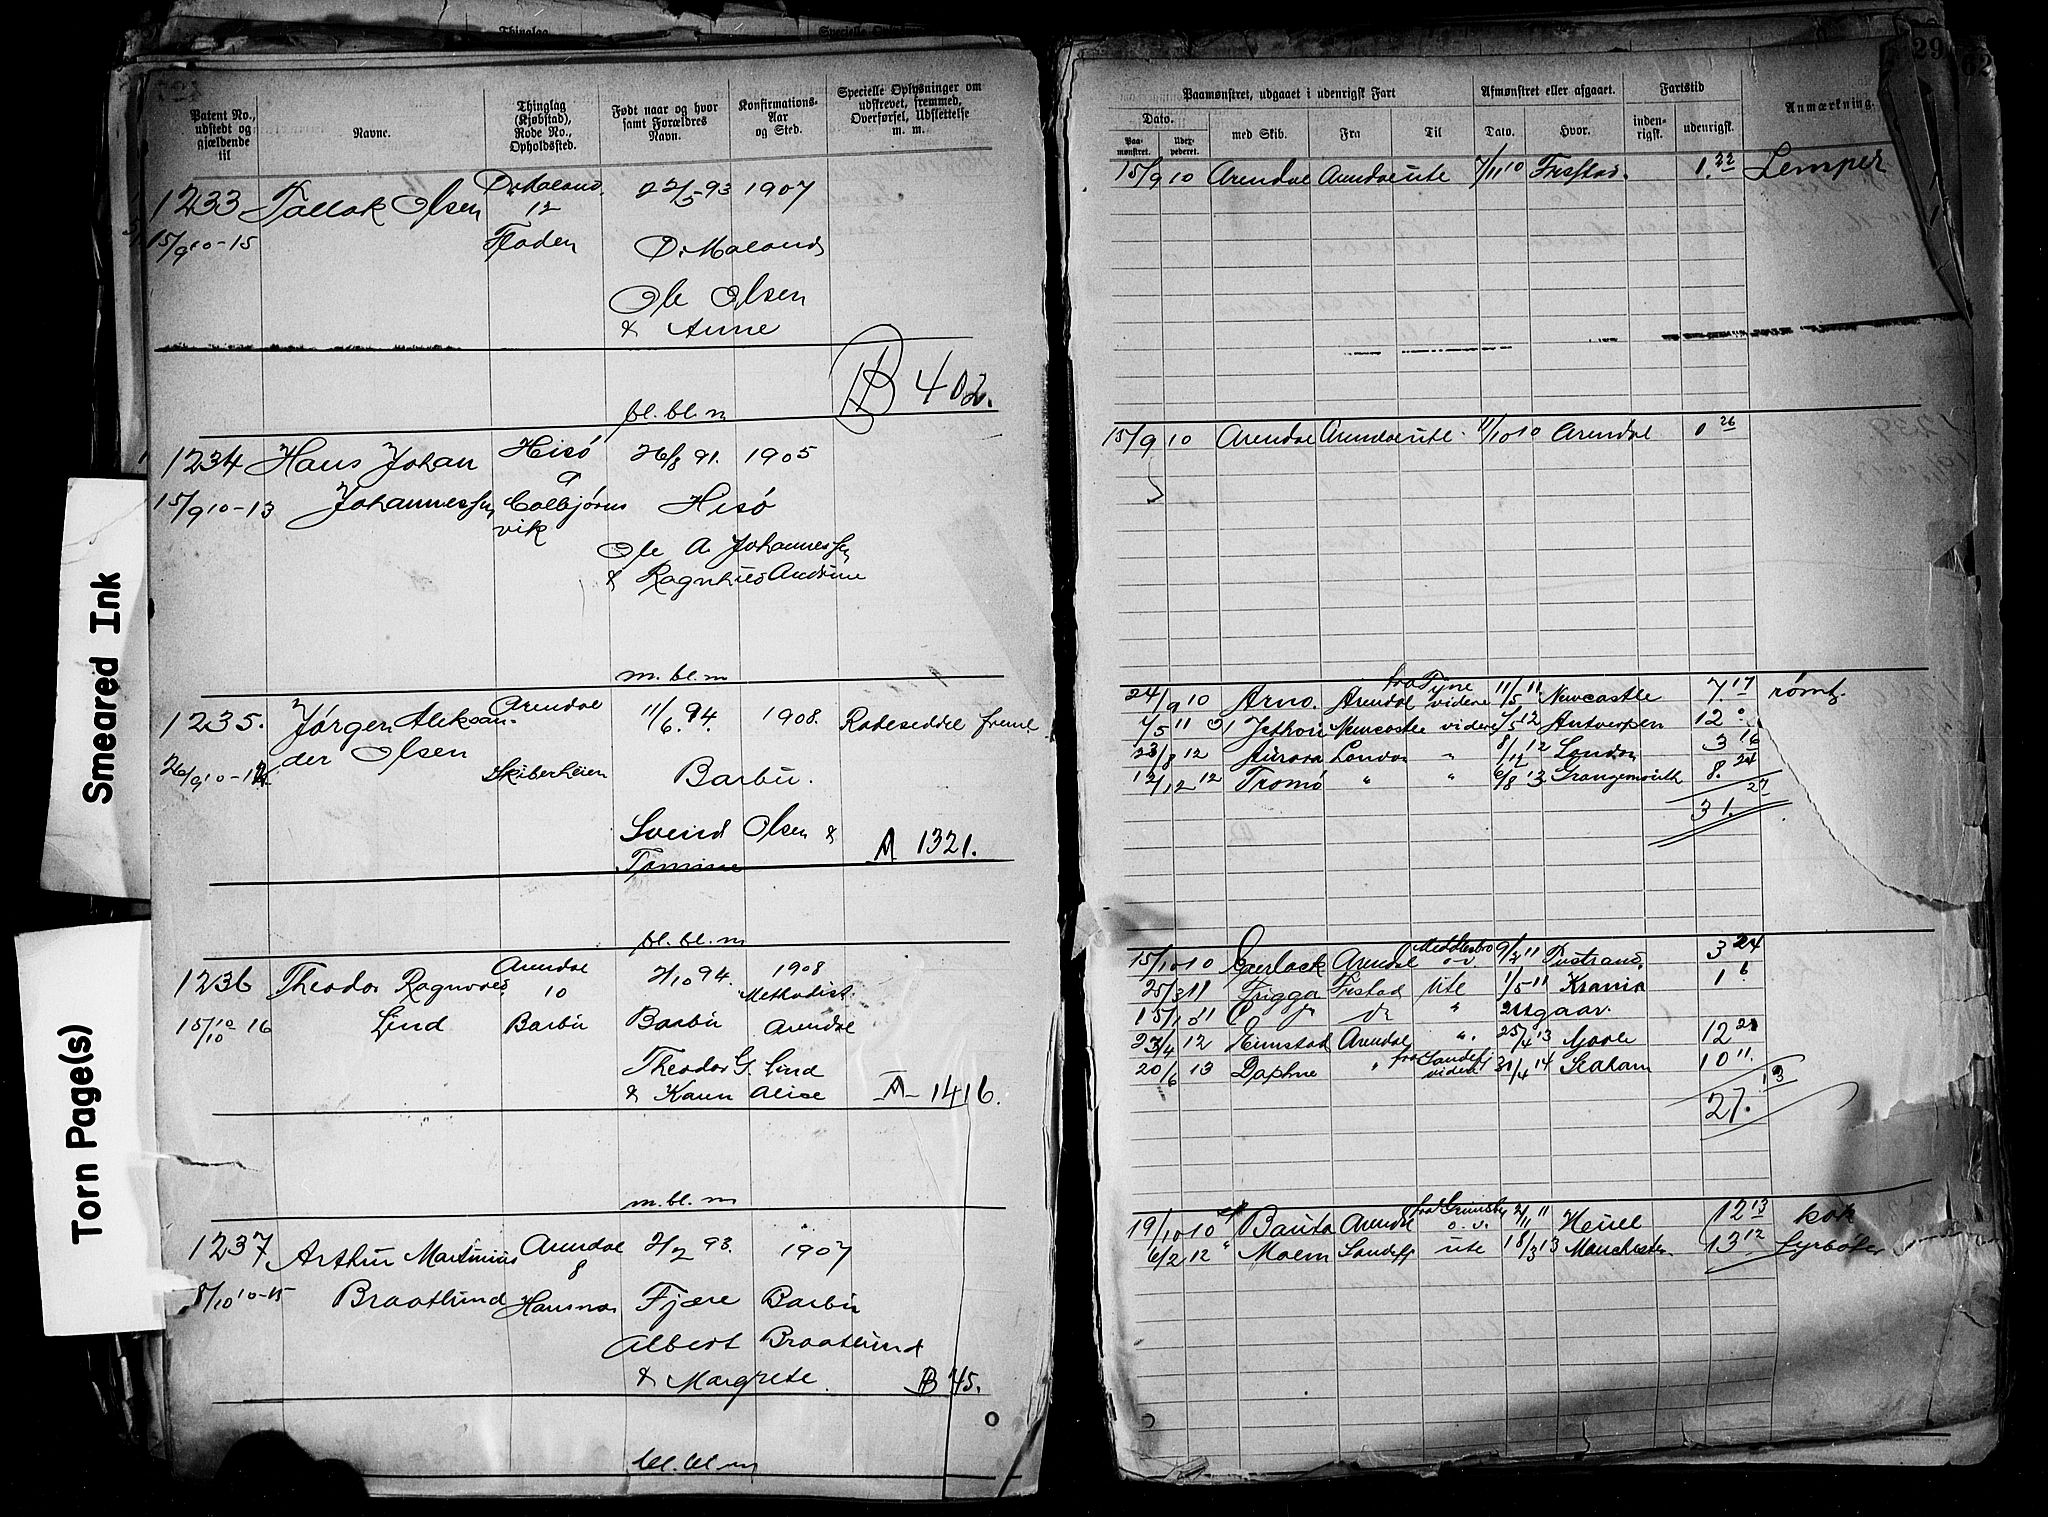 Thinglag
Specielle Opl
Patent No., udstedt og gjældende til
Navne.
Thinglag (Kjøbstad), Rode No., Opholdssted.
Født naar og hvor samt Forældres Navn.
Konfirmations-Aar og Sted.
Specielle Oplysninger om udskrevet, fremmed, Overførsel, Udslettelse m. m.
1233 Tallak Olsen Ø. Moland 22/5 93 1907
12
15/9 10-15 Fladen Ø. Moland
Ole Olsen
& Anne
B 402.
bl. bl. m
1234 Hans Johan Hisø 26/8 91. 1905
9
15/9 10-13 Johannessen Colbjørns Hisø
vik
Ole A Johannessen
& Ragnhild Andrine
m. bl. m
1235. Jørgen Aleksan- Arendal 11/6 94. 1908. Rodeseddel freml
der Olsen
26/9 10- Skiberheien Barbu.
Svend Olsen &
Tomine
A 1321.
bl. bl. m
1236 Theodor Ragnvald Arendal 2/10 94. 1908
10 Methodist.
15/10 10-16 Lind Barbu Barbu Arendal
Theodor G. Lind
& Karen Alise A 1416.
m. bl. m
1237 Arthur Martinius Arendal 2/2 93. 1907
8
8/10 10-15 Braatlund Fjære Barbu
Albert Braatlund
& Margrete. B 45.
bl. bl. m
29
62
Paamønstret, udgaaet i udenrigsk Fart
Afmønstret eller afgaaet.
Fartstid
Anmærkning.
Dato.
Paa-mønstret.
Udex-pederet.
med Skib.
Fra
Til
Dato.
Hvor.
inden-rigsk.
udenrigsk.
15/9 10 Arendal Arendal ute 7/11 10 Frestad. 1.22 Lemper
15/9 10 Arendal Arendal ute. 11/10 10 Arendal 0 26
24/9 10 Arno. Arendal fra Tyne videre 11/5 11 Newcastle 7.17 rømt.
11 Newcastle videre 12 Antwerpen 12
23/8 12 Aurora London " 12 London 3 16
12/12 12 Tromø " " 6/8 13 Grangemouth 8. 24
31. 27
15/10 10 Arendal Middlesbro o.v. 9/2 11 3 24
25/3 11 Frigga Frestad ute 1/5 11 Krania 1 6
11 do "
12 Arendal ". 25/4 13 12
20/6 13 Daphne " fra Sandefj videre 14 10 11.
27. 13
19/10 10 Bauta Arendal fra Grimsby o.v. 2/11 11 12 13 kok
6/2 12 " Malm Sandefj ute 18/3 13 Manchester 13 12 fyrbøter
Smeared Ink
Torn Page(s)